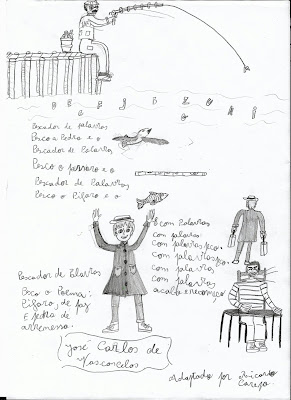 Pescador de palavras
Pesco a Pedra e o
Pescador de Palavras
Pesco o pássaro e o
Pescador de Palavras
Pesco o Pífaro e o
Pescador de Palavras
Pesco o Poema:
Pífaro, de paz
e pedra de
arremesso.
com Palavras
com palavras
com palavras peço.
com palavras peço.
com palavras
com palavras
acabo e recomeço
José Carlos de
Vasconcelos
Adaptado por Ricardo